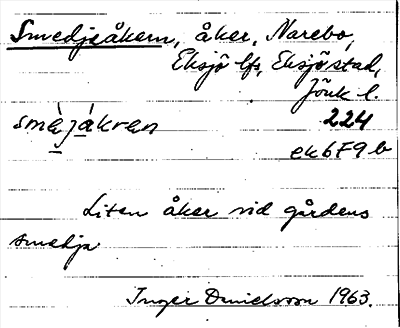 Smedjeåkern, åker, Narebo,
Eksjö lfs, Eksjö stad,
Jönk l.
smèjákran 224
ek6F9b
Liten åker vid gårdens
smedja
Inger Danielsson 1963.